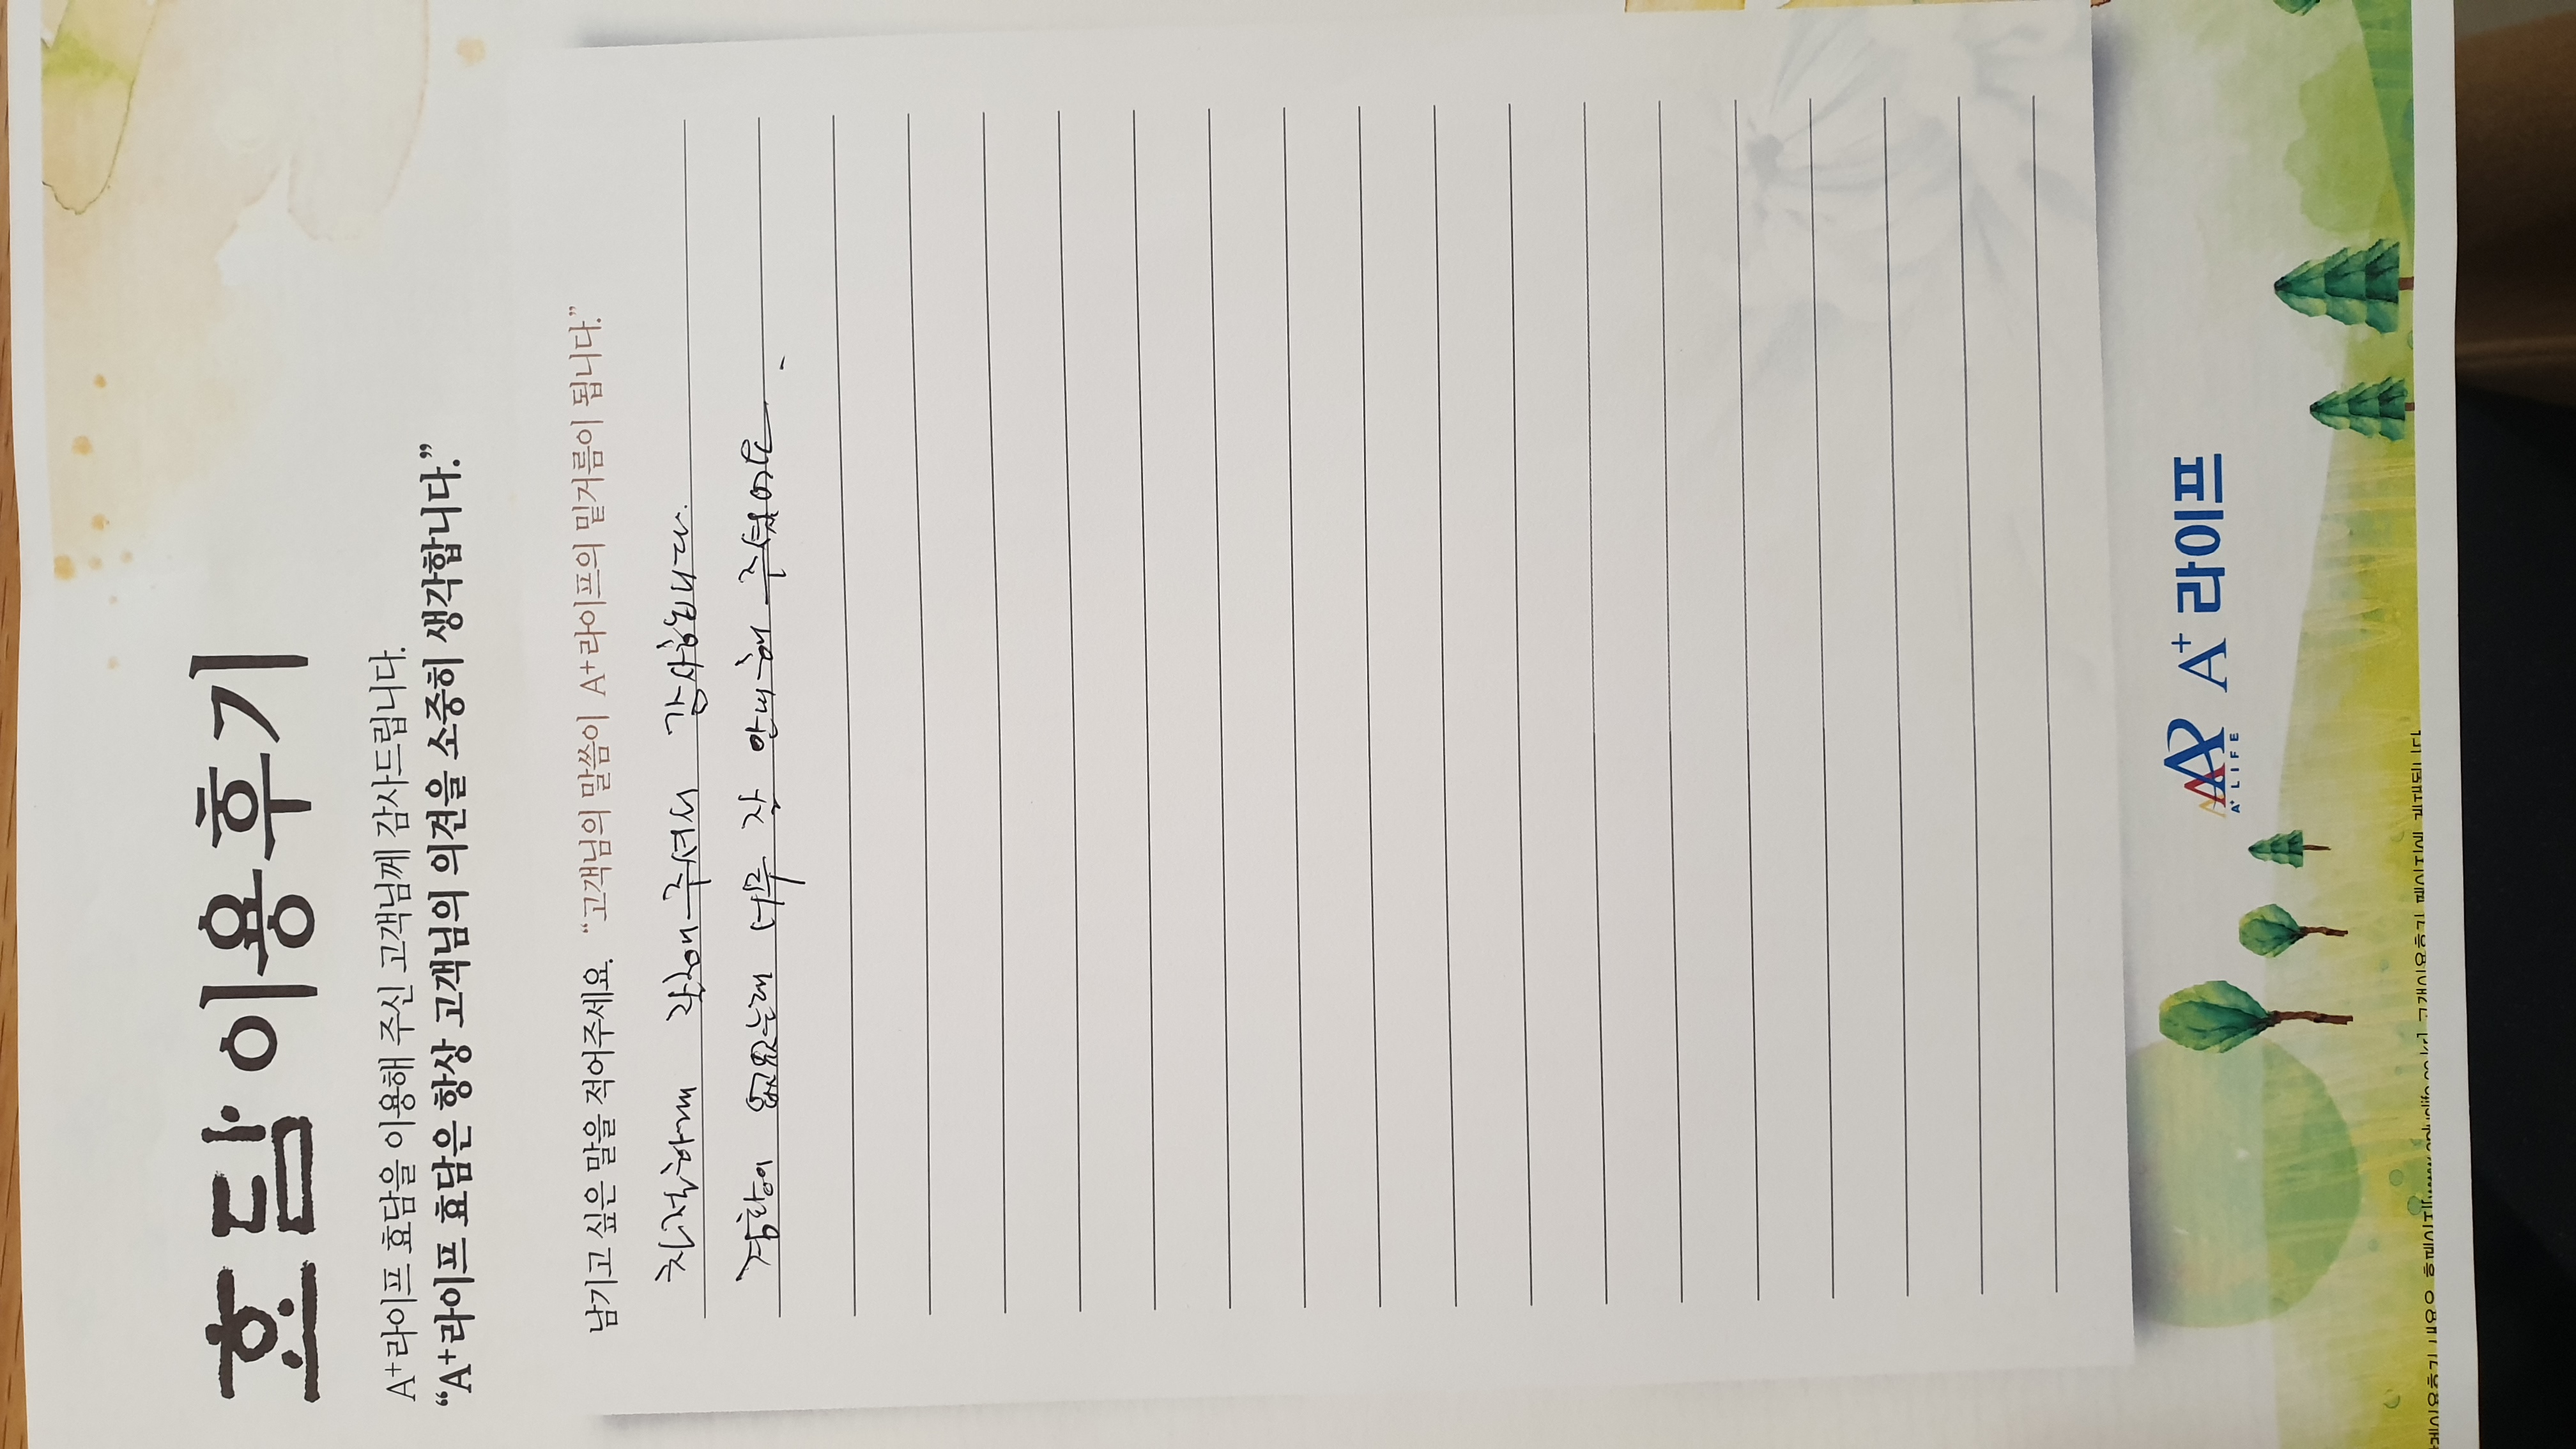 효담 이용후기
A⁺라이프 효담을 이용해 주신 고객님께 감사드립니다.
“A⁺라이프 효담은 항상 고객님의 의견을 소중히 생각합니다.”
남기고 싶은 말을 적어주세요. “고객님의 말씀이 A⁺라이프의 밑거름이 됩니다.”
친절하게 해주셔서 감사합니다.
경황이 없었는데 너무 잘 안내해 주셨어요.
A⁺ LIFE A⁺ 라이프
고객이용후기 페이지에 게재됩니다